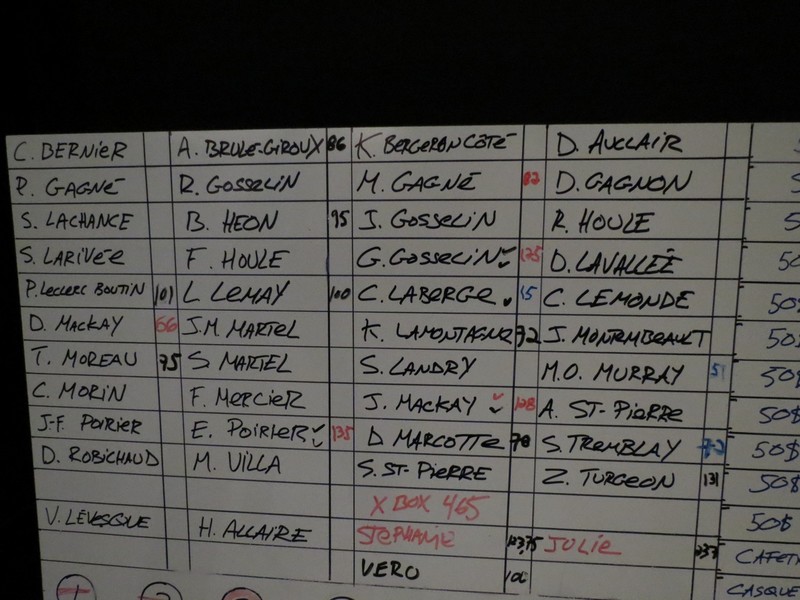 C. BERNIER A. BRULE-GIROUX 86 K. BERGERON COTÉ D. AUCLAIR
P. GAGNÉ R. GOSSELIN M. GAGNÉ D. GAGNON
S. LACHANCE B. HEON 95 J. GOSSELIN R. HOULE
S. LARIVÉE F. HOULE G. GOSSELIN 125 D. LAVALLÉE
P. LECLERC BOUTIN 101 L LEMAY 100 C. LABERGE 15 C. LEMONDE 50$
D. MACKAY 66 J.M. MARTEL K. LAMONTAGNE 72 J. MONTEMBEAULT 50$
T. MOREAU 75 S MARTEL S. LANDRY M.O. MURRAY 51 50$
C. MORIN F. MERCIER J. MACKAY 128 A. ST-PIERRE 50$
J-F. POIRIER E. POIRIER 135 D MARCOTTE 70 S. TREMBLAY 50$
D. ROBICHAUD M. VILLA S. ST-PIERRE Z. TURGEON 131 50$
X BOX 465 50$
V. LÉVESQUE H. ALLAIRE STEPHANIE JULIE 237
VERO CASQUE